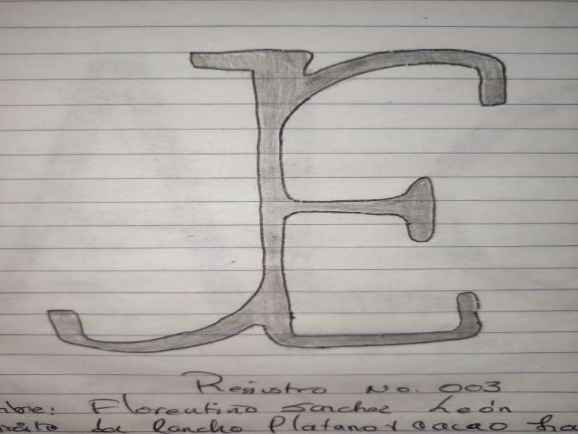 JE
Registro No. 003
mbre: Florentino Sanchez León
Rancho Platano y cacao